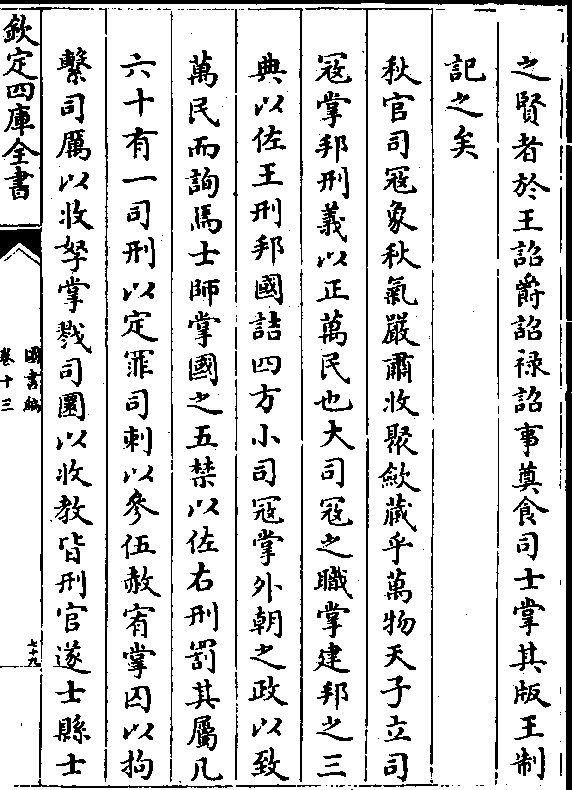 之賢者於王詔爵詔祿詔事奠食司士掌其版王制
記之矣
秋官司冦象秋氣嚴肅收聚歛藏乎萬物天子立司
冦掌邦刑義以正萬民也大司冦之職掌建邦之三
典以佐王刑邦國詰四方小司冦掌外朝之政以致
萬民而詢焉士師掌國之五禁以佐右刑罰其屬凡
六十有一司刑以定罪司刺以參伍赦宥掌囚以拘
繫司厲以收孥掌戮司圜以收教皆刑官遂士縣士
欽定四庫全書
圖書編
卷十三
七十九